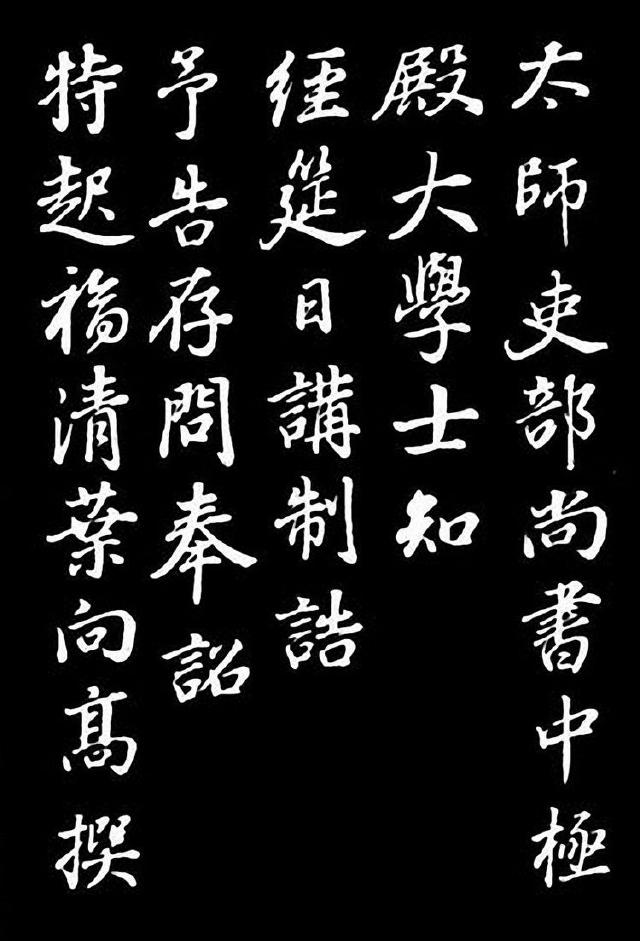 太師吏部尚書中極
殿大學士知
經筵日講制誥
予告存問奉詔
特起福清葉向高撰